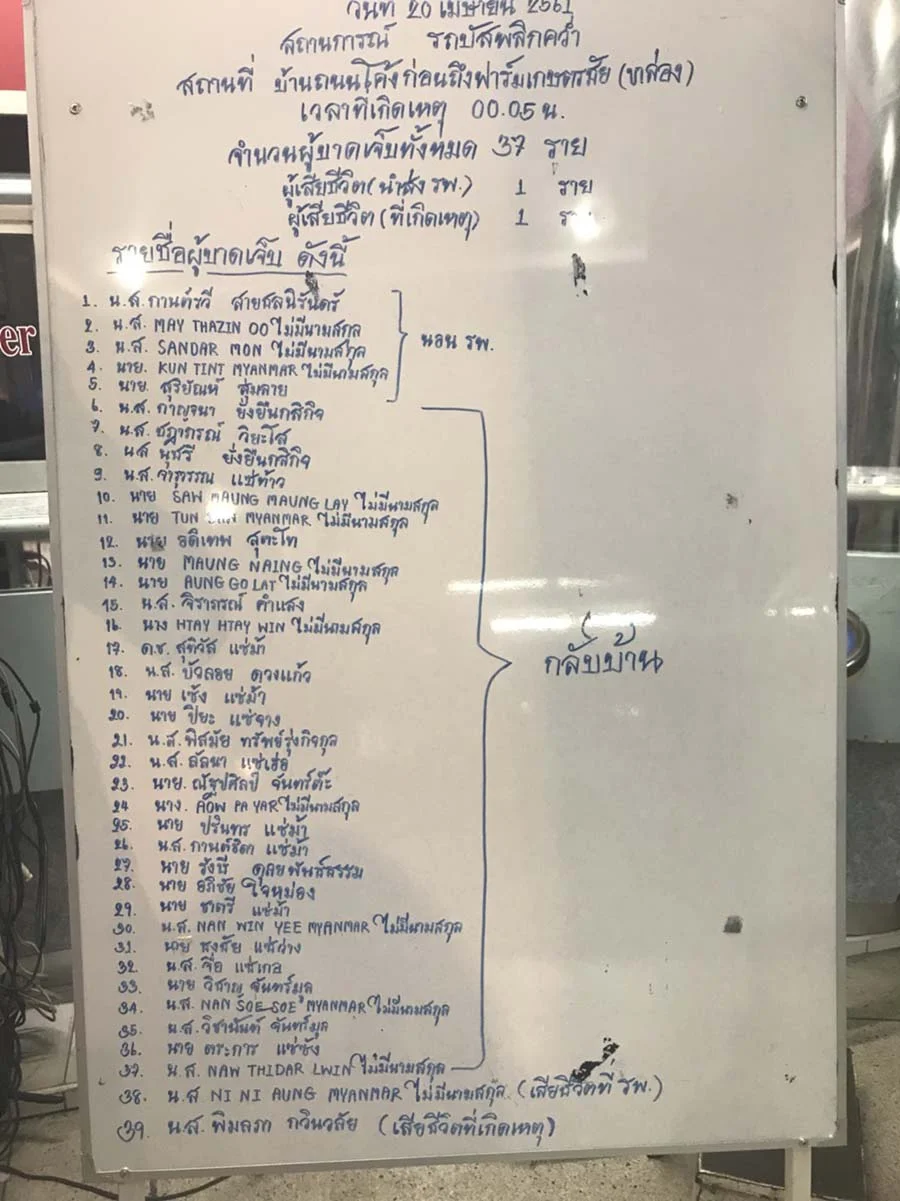 วันที่ 20 เมษายน 2561
สถานการณ์ รถบัสพลิกคว่ำ
สถานที่ บ้านถนนโค้งก่อนถึงฟาร์มเกษตรสัย (หล่อง)
เวลาที่เกิดเหตุ 00.05 น.
จำนวนผู้บาดเจ็บทั้งหมด 37 ราย
ผู้เสียชีวิต (นำส่ง รพ.) 1 ราย
ผู้เสียชีวิต (ที่เกิดเหตุ) 1
รายชื่อผู้บาดเจ็บ ดังนี้
1. น.ส. กานต์รวี สายชลนิรันดร์
2. น.ส. MAY THAZIN OO ไม่มีนามสกุล
3. น.ส. SANDAR MON ไม่มีนามสกุล
นอน รพ.
4. นาย. KUN TINT MYANMAR ไม่มีนามสกุล
5. นาย. สุริยัณห์ สุ่มลาย
6. น.ส. กาญจนา ยั่งยืนกสิกิจ
7. น.ส. ชฎาภรณ์ วิยะโส
8. น.ส นุชรี ยั่งยืนกสิกิจ
9. น.ส. จารุวรรณ แซ่ท้าว
10. นาย SAW MAUNG MAUNG LAY ไม่มีนามสกุล
11. นาย TUN MYANMAR ไม่มีนามสกุล
12. นาย อดิเทพ สุตะโท
13. นาย MAUNG NAING ไม่มีนามสกุล
14. นาย AUNG GO LAT ไม่มีนามสกุล
15. น.ส. จิราภรณ์ คำแสง
16. นาง HTAY HTAY WIN ไม่มีนามสกุล
17. ด.ช. สุทิวัส แซ่ม้า
กลับบ้าน
18. น.ส. บัวลอย ดวงแก้ว
19. นาย เซ้ง แซ่ม้า
20. นาย ปิยะ แซ่จาง
21. น.ส. พิสมัย ทรัพย์รุ่งกิจกุล
22. น.ส. ลัลนา แซ่เฮ่อ
23. นาย. ณัฐปศิลป์ จันทร์ต๊ะ
24 นาง. AOW PA YAR ไม่มีนามสกุล
25. นาย ปรินทร แซ่ม้า
26. น.ส. กานต์ธิดา แซ่ม้า
27. นาย รังษี ดุลยพันธ์ธรรม
28. นาย อภิชัย ใจหม่อง
29. นาย ชาตรี แซ่ม้า
30. น.ส. NAN WIN YEE MYANMAR ไม่มีนามสกุล
31. นาย ธงชัย แซ่ว่าง
32. น.ส. จื่อ แซ่เกอ
33. นาย วิชาญ จันทร์มูล
34. น.ส. NAN SOE SOE MYANMAR ไม่มีนามสกุล
35. น.ส. วิชานันต์ จันทร์มูล
36. นาย ตระการ แซ่ซ้ง
37. น.ส. NAW THIDAR LWIN ไม่มีนามสกุล
38. น.ส NI NI AUNG MYANMAR ไม่มีนามสกุล. (เสียชีวิตที่ รพ.)
39. น.ส. พิมลภา กวินวลัย (เสียชีวิตที่เกิดเหตุ)
er